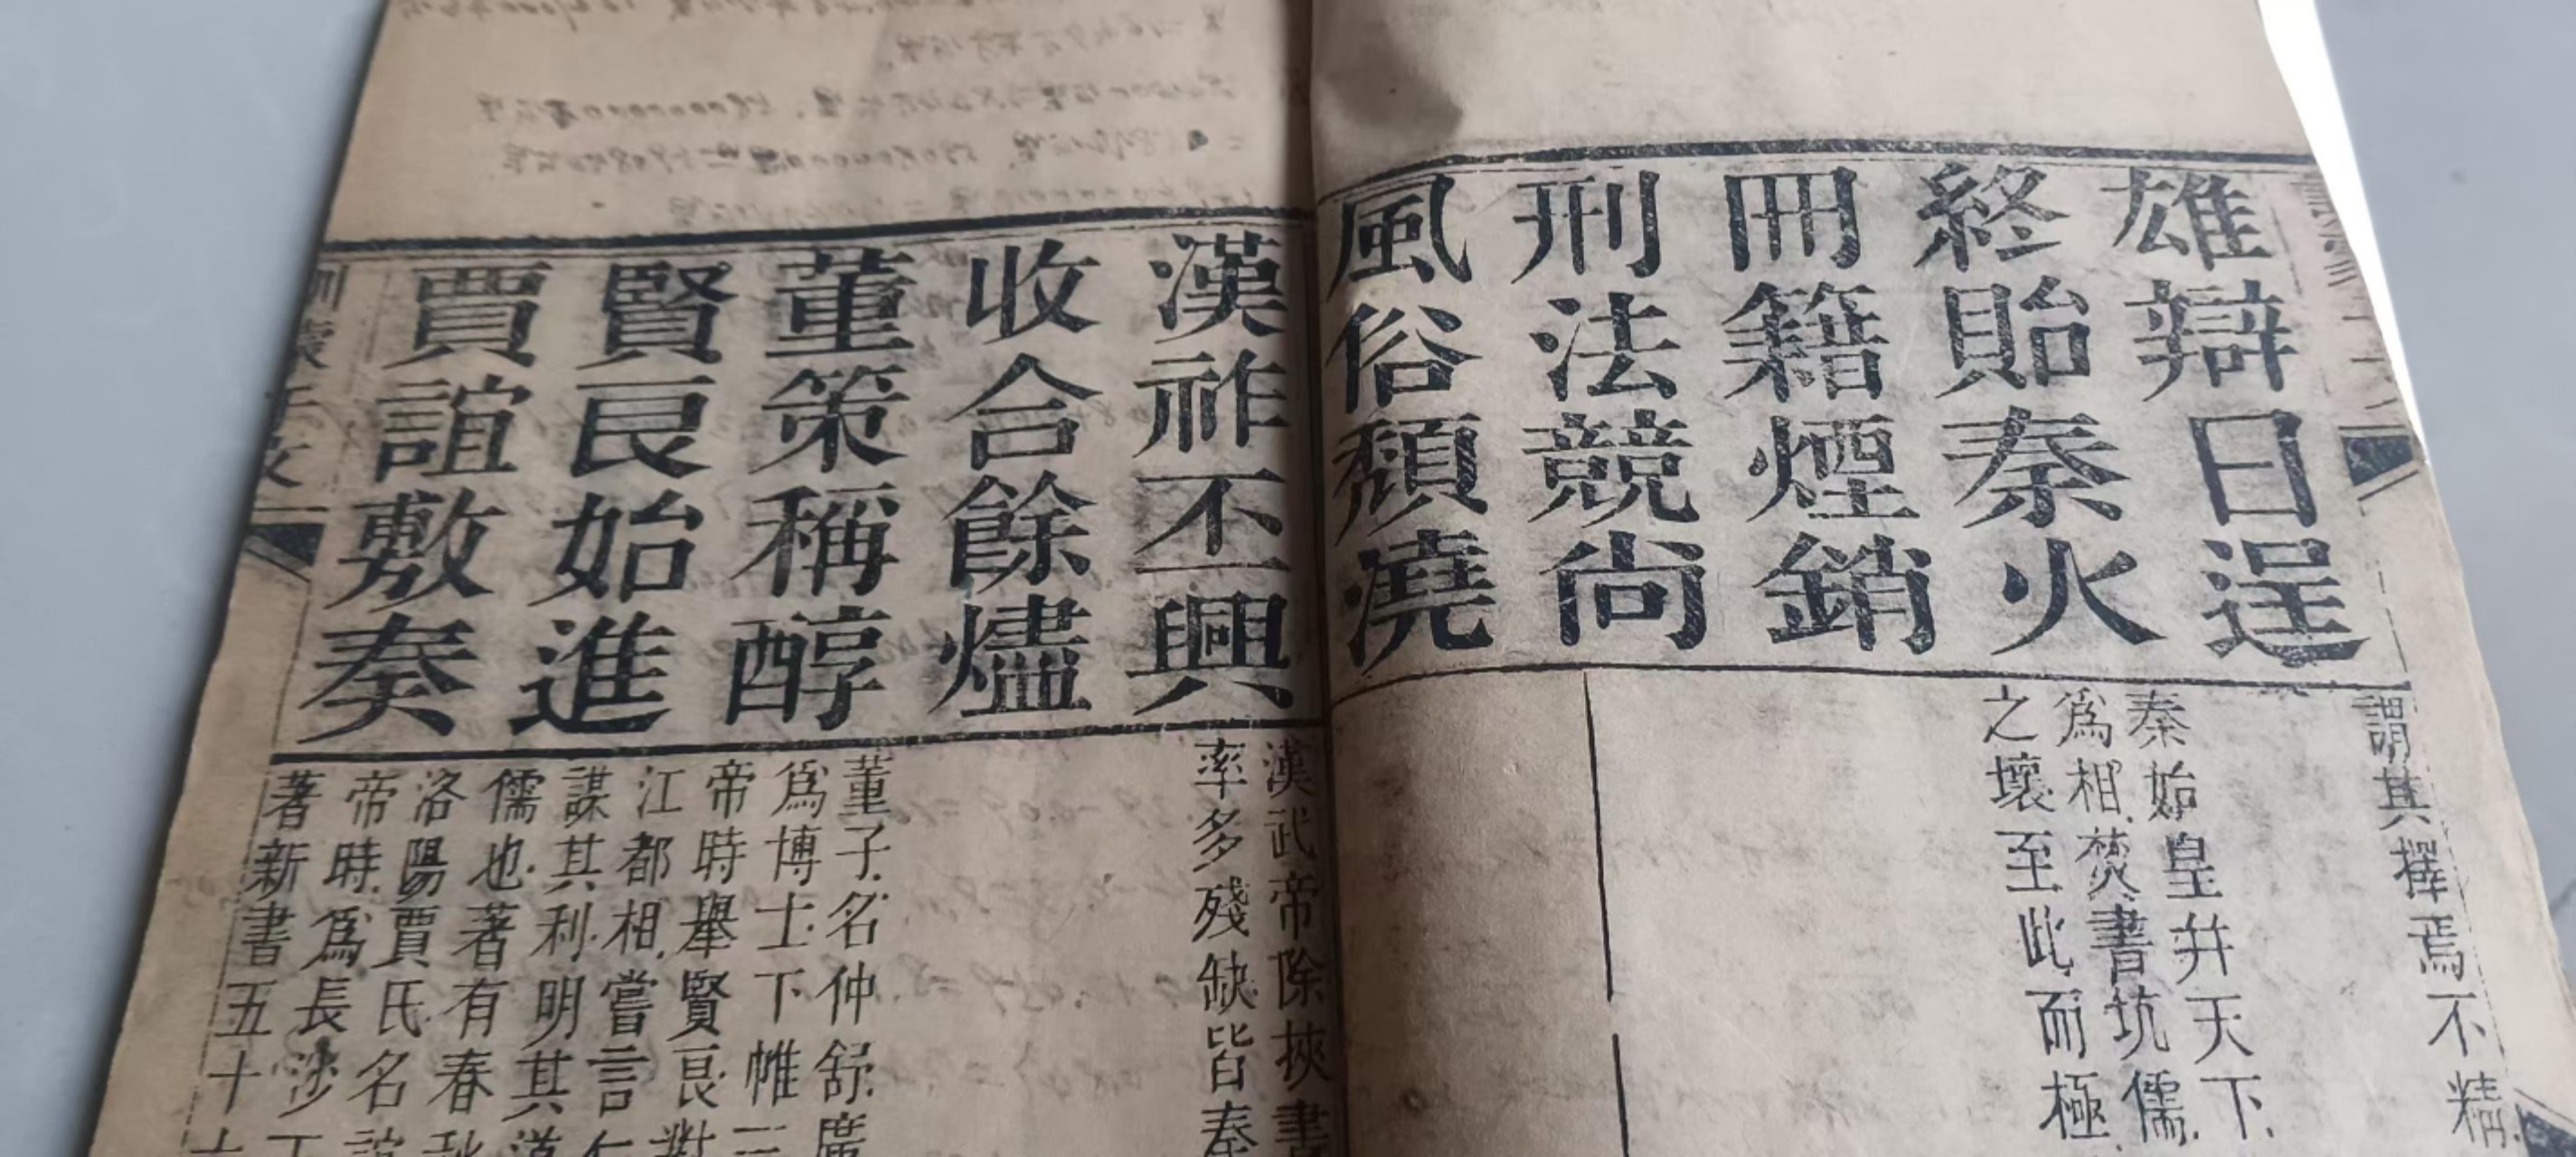 雄辯日逞
終貽秦火
冊籍煙銷
刑法競尚
風俗頹澆
謂其擇焉不精
秦始皇并天下
爲相焚書坑儒
之壞至此而極
漢祚丕興
收合餘燼
董策稱醇
賢良始進
賈誼敷奏
漢武帝除挾書
率多殘缺皆奉
董子名仲舒廣
爲博士下帷三
帝時舉賢良對
江都相嘗言仁
謀其利明其道
儒也著有春秋
洛陽賈氏名誼
帝時爲長沙王
著新書五十
訓蒙千文